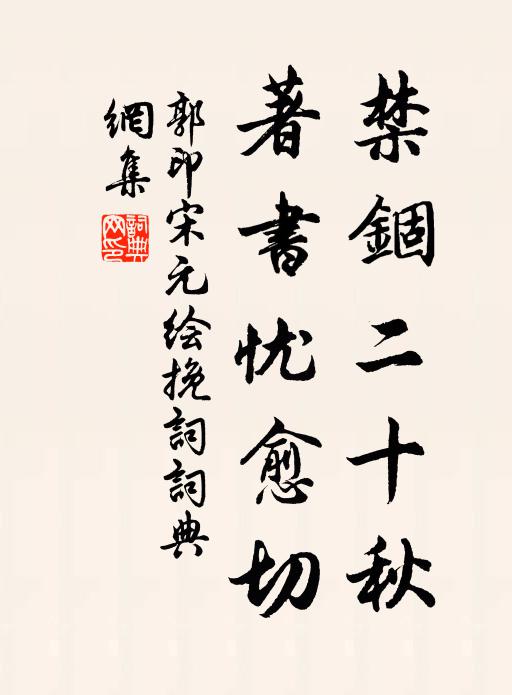 禁錮二十秋
著書忧愈切
郭印宋元绘挽詞詞典
網集
詞典網印